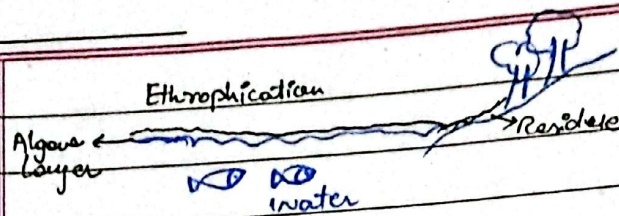 Ethrophication
Algave
layer
Residue
water